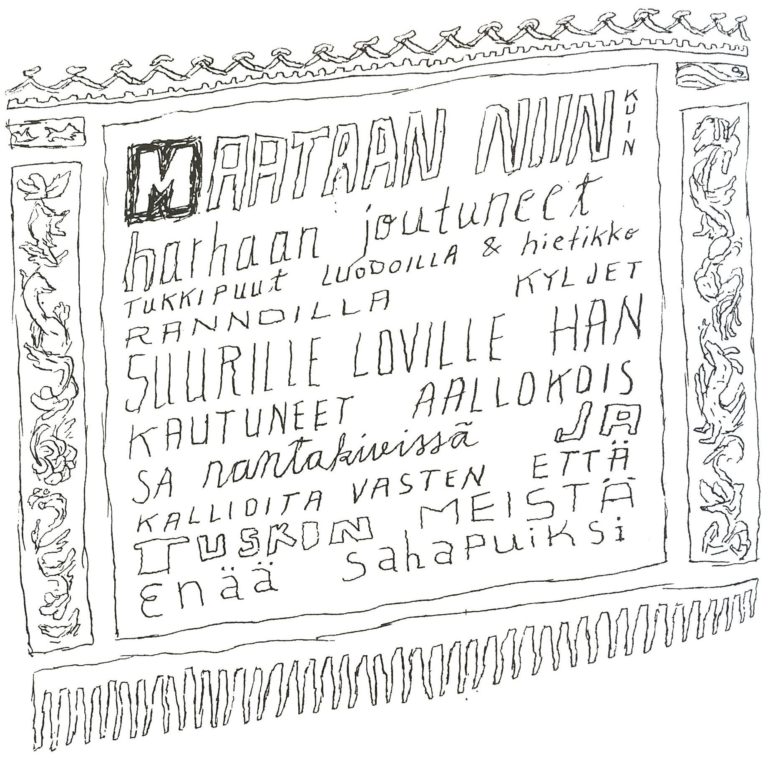 MAATAAN NIIN KUIN
harhaan joutuneet
TUKKIPUUT LUODOILLA & hietikko
RANNOILLA KYLJET
SUURILLE LOVILLE HAN
KAUTUNEET AALLOKOIS
SA rantakivissä JA
KALLIOITA VASTEN ETTÄ
TUSKIN MEISTÄ
Enää sahapuiksi